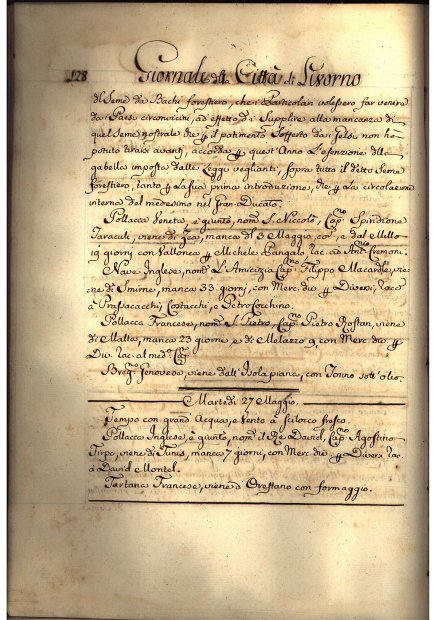 128 Giornali della Città di Livorno
del Seme di Bachi forestiero, che i Particolari volessero far venire
da i Paesi circonvicini, ad effetto di supplire alla mancanza di
quel Seme nostrale che p il patimento sofferto da i Gelsi non ha
potuto tirarsi avanti, accorda p quest'Anno l'esenzione dalla
gabella imposta dalle Leggi veglianti, sopra tutto il detto Seme
forestiero, tanto p la sua prima introduzione, che p la circolazione
interna del medesimo nel Gran-Ducato.
Pollacca Veneta è giunta, nom.a S. Niccolò, Cap.no Spiridione
Taraculi, viene di manca dal 3 Maggio, e dal
19 giorni con Vallonea p Michele Pangalo rac. a Ant.o Cremoni.
Nave Inglese, nom.a L'Amicizia Cap.no Filippo Macardle, vie-
ne di Smirne, manca 33 giorni, con Merc. div. p Diversi, racc.
a Prassacachi, Costacchi, e Petrocochino.
Pollacca Francese, nom.a S. Pietro, Cap.no Pietro Rostan, viene
di Malta, manca 23 giorni e di Melazzo 9, con Merc. div. p
Div. rac. al med.o Cap.no
Brig.no Genovese, viene dall'Isola piana, con Tonno sott'olio.
Martedì 27 Maggio.
Tempo con grand'Acqua, e Vento a Scilocco fresco.
Pollacca Inglese, è giunta, nom.a il Re David, Cap.no Agostino
Tirpo, viene di Tunis, manca 7 giorni, con Merc. div. p Diversi rac.
a David Montel.
Tartana Francese, viene d'Oristano con formaggio.